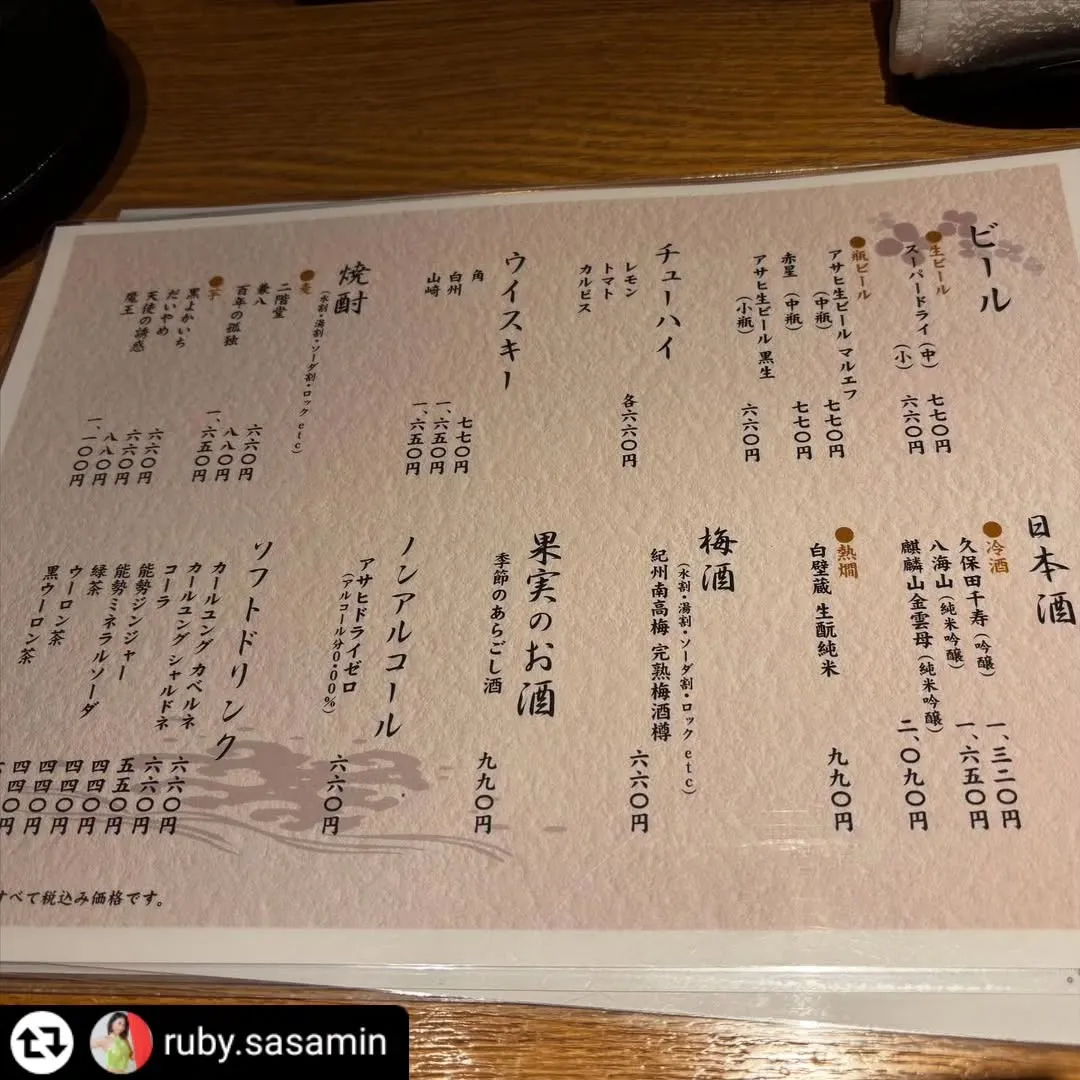 ビール
●生ビール
スーパードライ（中） 七七〇円
（小） 六六〇円
●瓶ビール
アサヒ生ビール マルエフ
（中瓶） 七七〇円
赤星（中瓶） 七七〇円
アサヒ生ビール 黒生
（小瓶） 六六〇円
チューハイ
レモン
トマト
カルピス
各六六〇円
ウイスキー
角 七七〇円
白州 一、六五〇円
山崎 一、六五〇円
焼酎
（水割・湯割・ソーダ割・ロック etc）
●麦
二階堂 六六〇円
兼八 八八〇円
百年の孤独 一、六五〇円
●芋
黒よかいち 六六〇円
だいやめ 六六〇円
天使の誘惑 八八〇円
魔王 一、一〇〇円
日本酒
●冷酒
久保田千寿（吟醸） 一、三二〇円
八海山（純米吟醸） 一、六五〇円
麒麟山金雲母（純米吟醸） 二、〇九〇円
●熱燗
白壁蔵 生酛純米 九九〇円
梅酒
（水割・湯割・ソーダ割・ロック etc）
紀州南高梅 完熟梅酒樽 六六〇円
果実のお酒
季節のあらごし酒 九九〇円
ノンアルコール
アサヒドライゼロ
（アルコール分0.00%） 六六〇円
ソフトドリンク
カールユング カベルネ 六六〇円
カールユング シャルドネ 六六〇円
コーラ 五五〇円
能勢ジンジャー 四四〇円
能勢ミネラルソーダ 四四〇円
緑茶 四四〇円
ウーロン茶 四四〇円
黒ウーロン茶
すべて税込み価格です。
ruby.sasamin